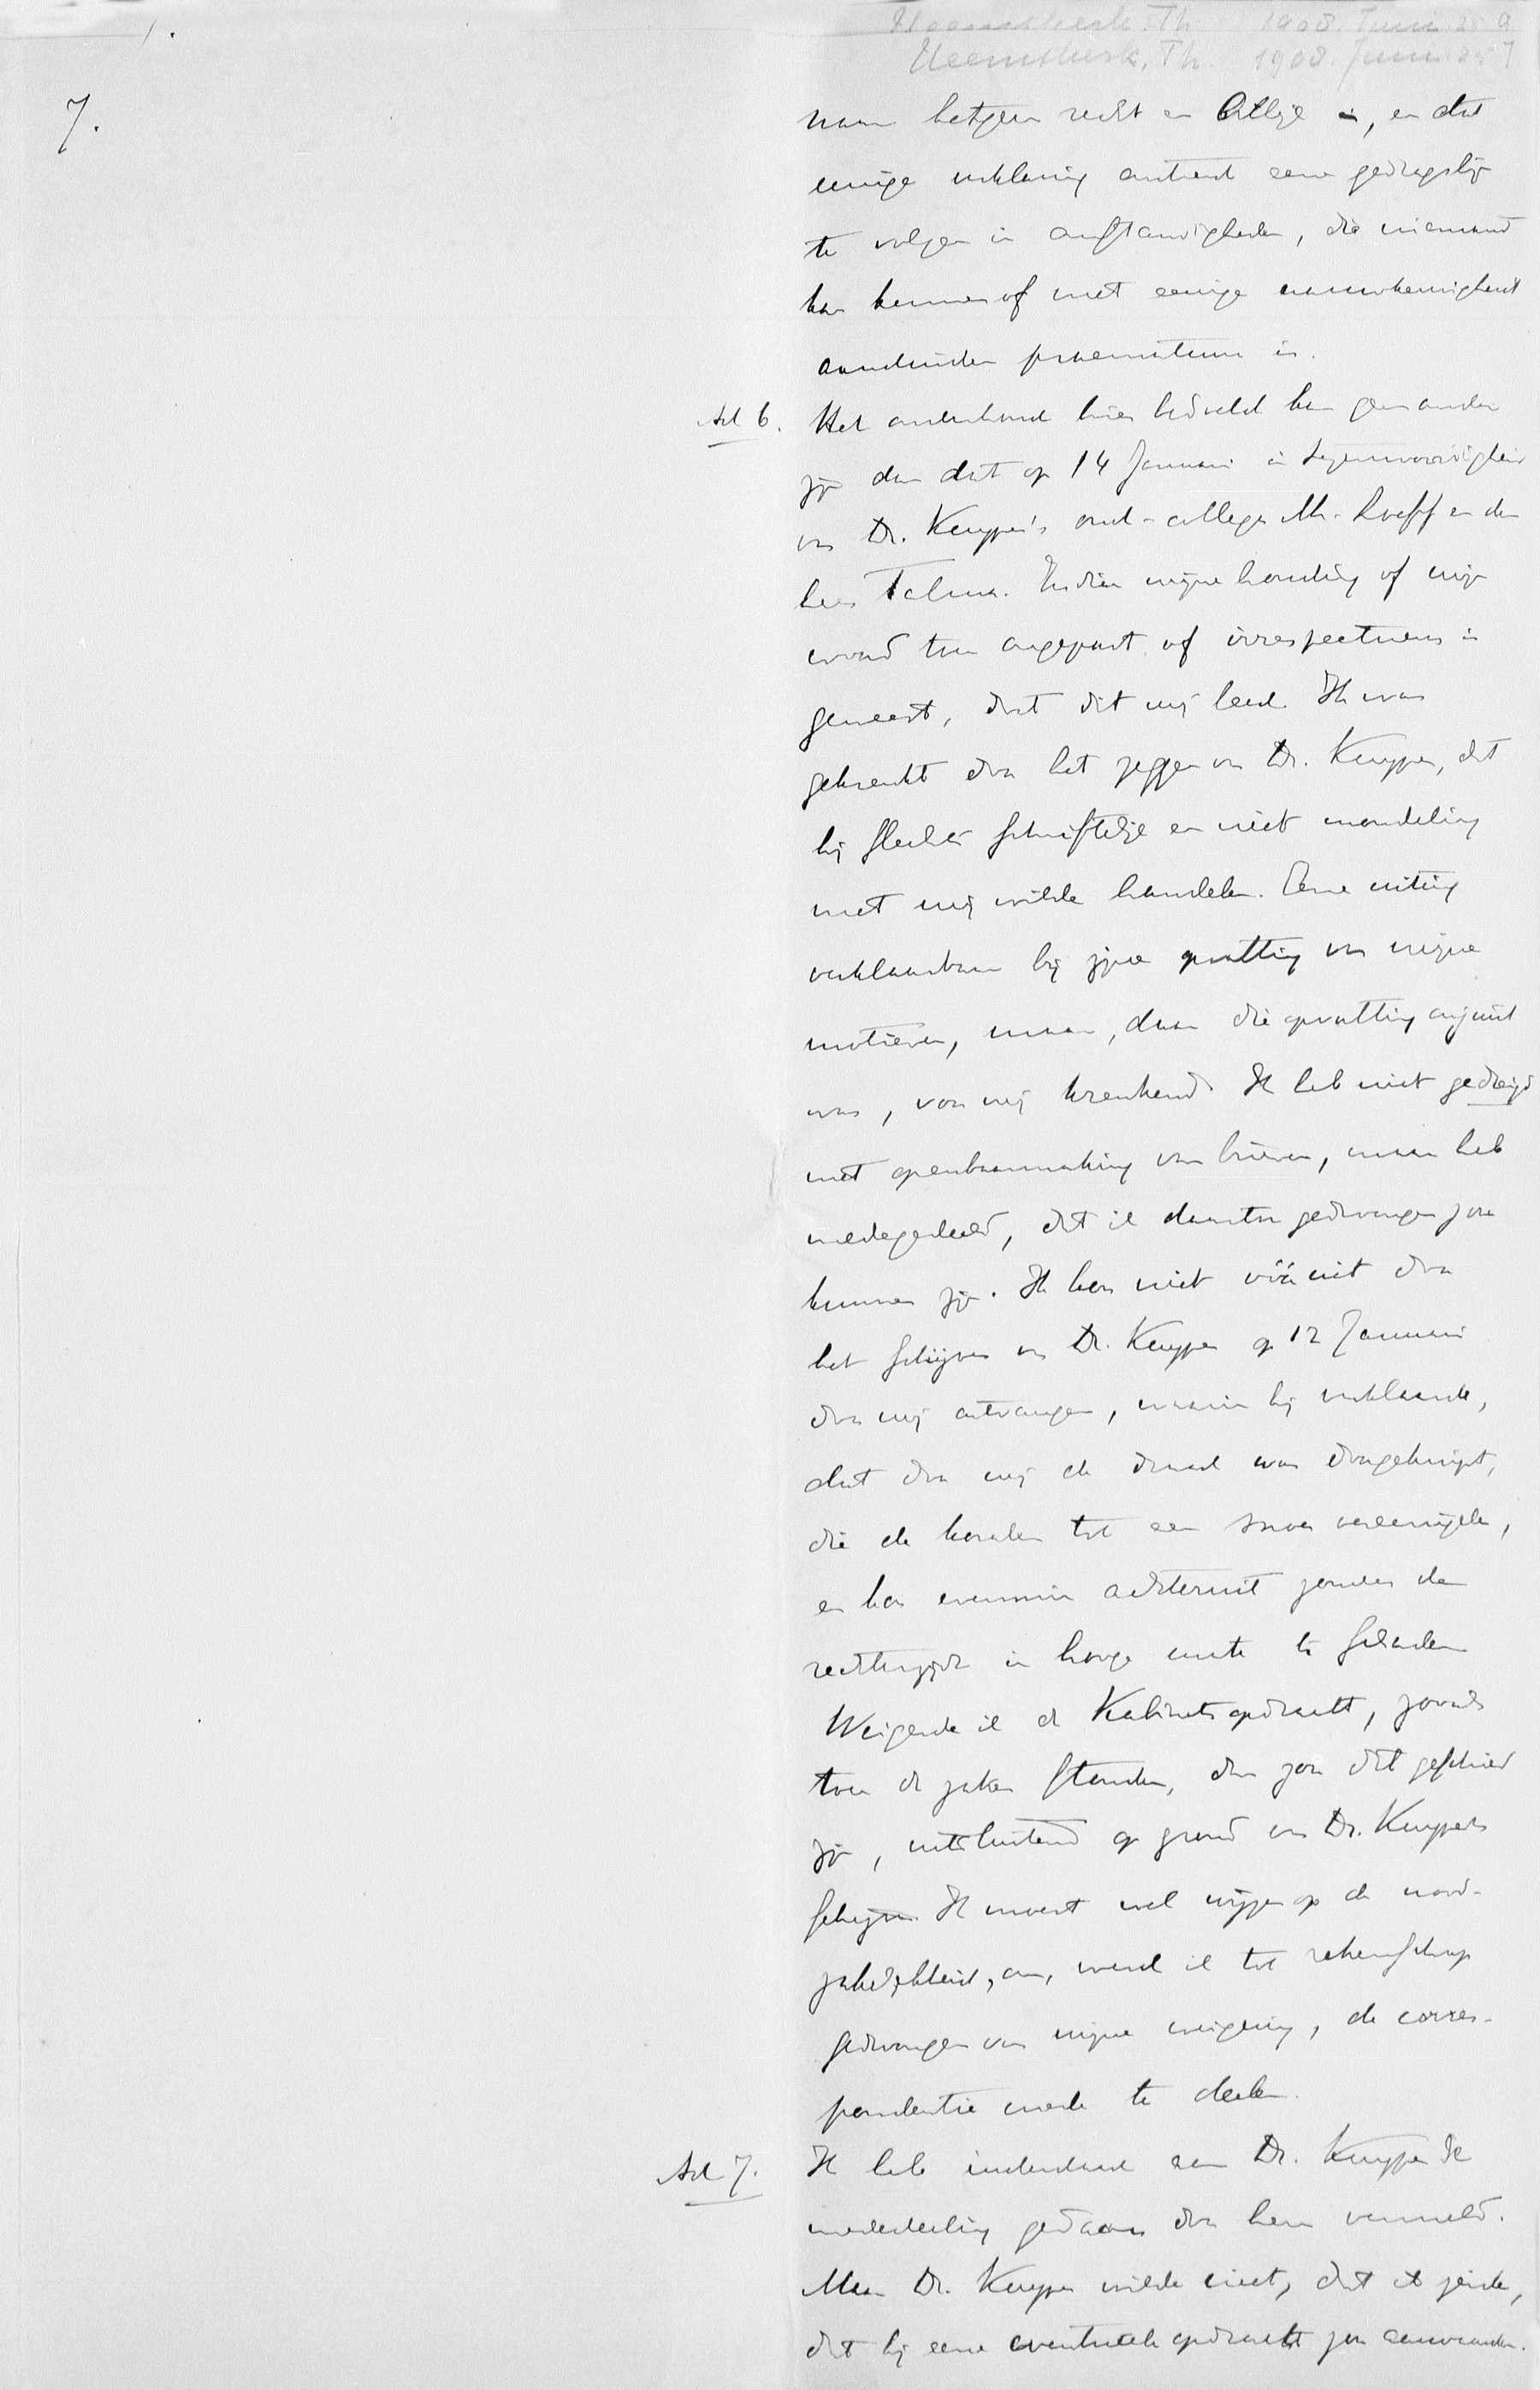 Heemskerk, Th. 1908. Juni 25 9
Heemskerk, Th. 1908. Juni 25 7
7.
naar hetgeen recht en billijk is, en dat
eenige verklaring omtrent eene gedragslijn
te volgen in omstandigheden, die niemand
kan kennen of met eenige nauwkeurigheid
aanduiden praematuur is.
Ad 6. Het onderhoud hier bedoeld kan geen ander
zijn dan dat op 14 Januari in tegenwoordigheid
van Dr. Kuyper's oud-collega Mr. Loeff en den
heer Talma. Indien mijne houding of mijn
woord toen ongepast of irrespectueus is
geweest, doet dit mij leed. Ik was
gekrenkt door het zeggen van Dr. Kuyper, dat
hij slechts schriftelijk en niet mondeling
met mij wilde handelen. Eene uiting
verklaarbaar bij zijne opvatting van mijne
motieven, maar, daar die opvatting onjuist
was, voor mij krenkend. Ik heb niet gedreigd
met openbaarmaking van brieven, maar heb
medegedeeld, dat ik daartoe gedwongen zou
kunnen zijn. Ik kon niet vooruit door
het schrijven van Dr. Kuyper op 12 Januari
door mij ontvangen, waarin hij verklaarde,
dat door mij de draad was doorgeknipt,
die de koralen tot een snoer vereenigde,
en kon evenmin achteruit zonder de
rechterzijde in hooge mate te schaden
Weigerde ik de Kabinetsopdracht, zooals
toen de zaken stonden, dan zou dit geschied
zijn, uitsluitend op grond van Dr. Kuypers
schrijven. Ik moest wel wijzen op de nood-
zakelijkheid, om, werd ik tot rekenschap
gedwongen van mijne weigering, de corres-
pondentie mede te deelen.
Ad 7. Ik heb inderdaad aan Dr. Kuyper de
mededeeling gedaan door hem vermeld.
Maar Dr. Kuyper wilde niet, dat ik zeide,
dat hij eene eventueele opdracht zou aanvaarden.